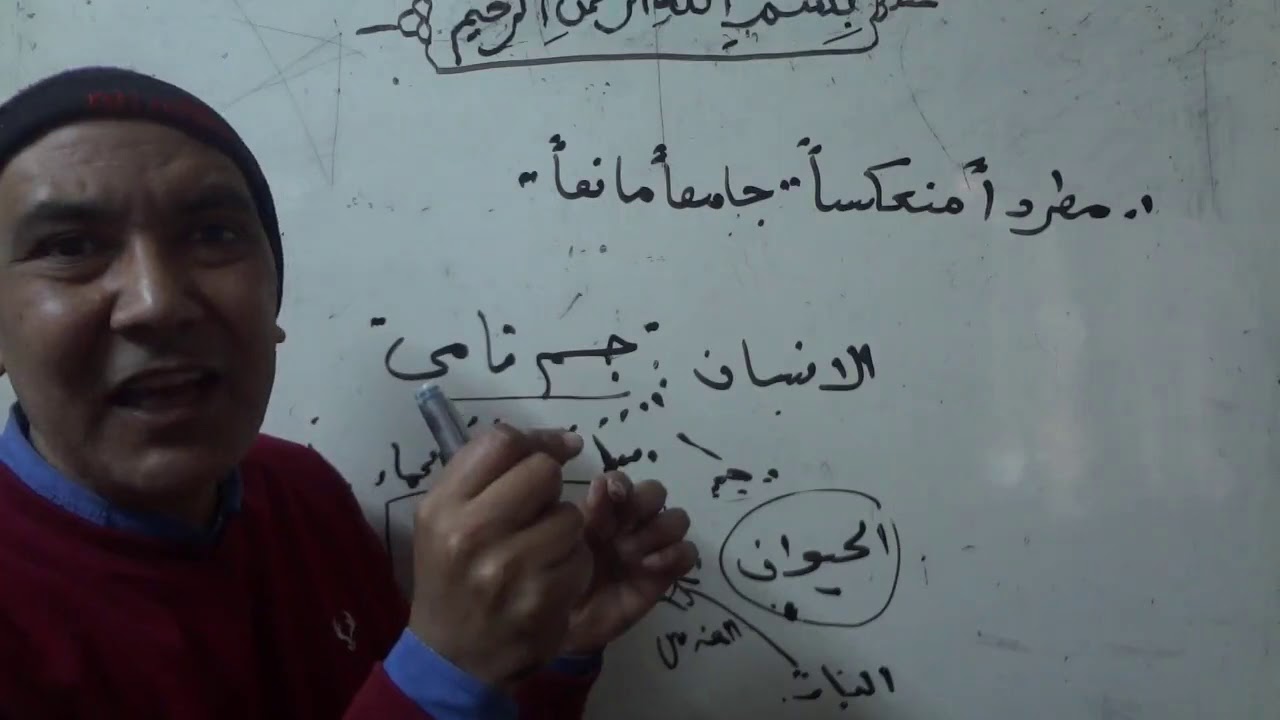 بِسْمِ اللهِ الرَّحْمَنِ الرَّحِيمِ
مطرداً منعكساً جامعاً مانعاً
الانسان : جسم نامى
الحيوان
النبات